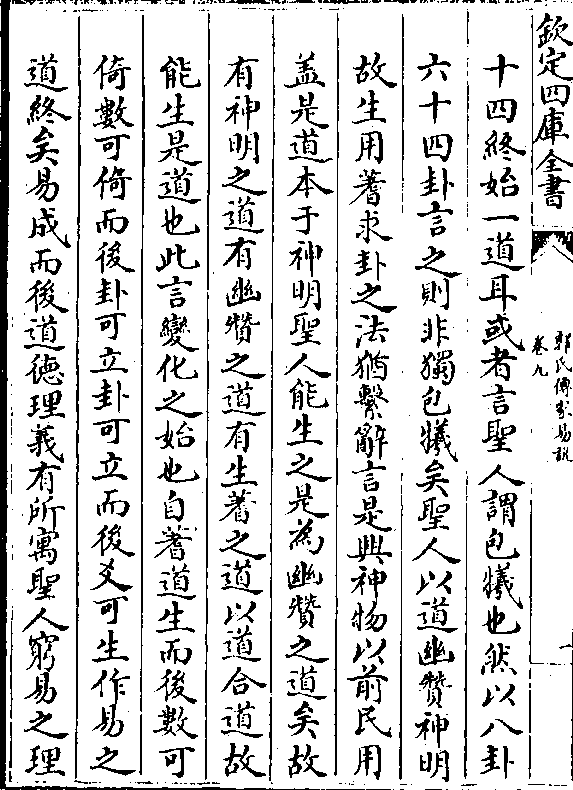 欽定四庫全書
郭氏傳家易說
卷九
一
十四終始一道耳或者言聖人謂包犧也然以八卦
六十四卦言之則非獨包犧矣聖人以道幽贊神明
故生用蓍求卦之法猶繫辭言是興神物以前民用
盖是道本于神明聖人能生之是為幽贊之道矣故
有神明之道有幽贊之道有生蓍之道以道合道故
能生是道也此言變化之始也自蓍道生而後數可
倚數可倚而後卦可立卦可立而後爻可生作易之
道終矣易成而後道德理義有所寓聖人窮易之理